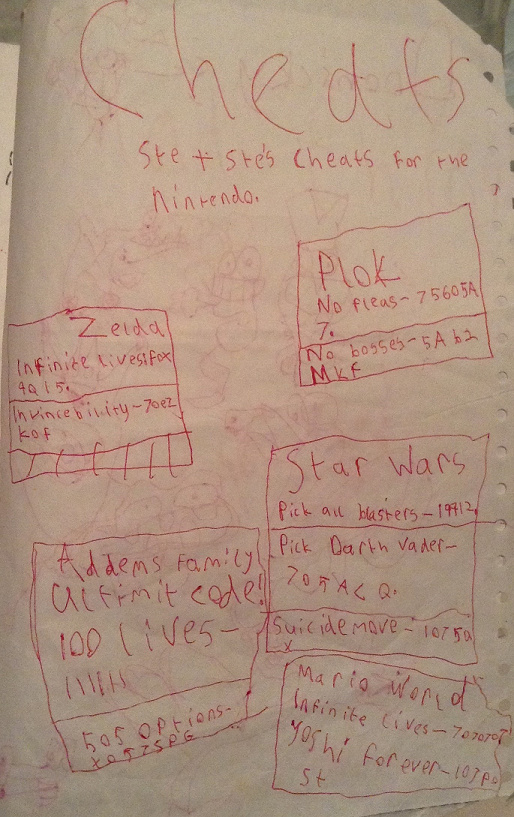 Cheats
Ste + Ste's cheats for the
Nintendo.
Plok
No fleas- 75605A
7.
No bosses- 5A b2
MKF
Zelda
Infinite lives
Invincebility- 70ez
Kof
Star Wars
Pick all blasters- 19412
Pick Darth Vader-
705A< Q.
Suicide move- 1075a
x
Addems Family
Ultimit code!
100 lives-
111111
505 Options-
X0575PG
Mario World
Infinite lives- 7070707
Yoshi Forever- 107Pa
St